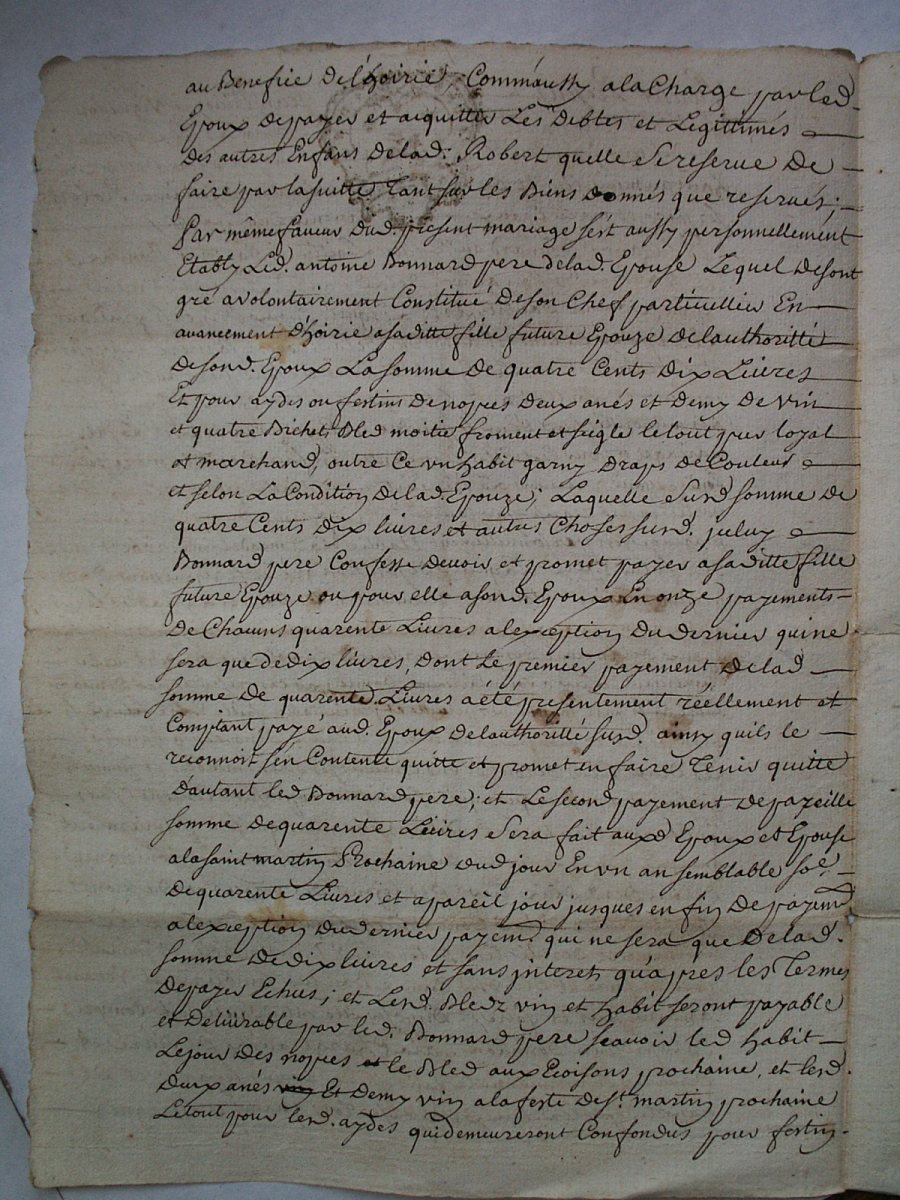 au Benefice de l'hoirie, Comm'aussy a la Charge par led.
Epoux de payer et acquitter Les Debtes et Legittimes
des autres Enfans de lad. Robert quelle se reserve de
faire par la suitte tant sur les Biens donnés que reservés;
Par même faveur dud. present mariage s'est aussy personnellement
Etably Led. antoine Bonnard pere de lad. Epouse Lequel de son
gré a volontairement Constitué de son Chef particullier En
avancement d'hoirie a sa ditte fille future Epouze de lauthoritté
de sond. Epoux La somme de quatre Cents Dix Livres
Et pour aydes ou festins de nopces deux anés et demy de vin
et quatre Bichets Bled moitié froment et seigle le tout pur loyal
et marchand, outre Ce un habit garny draps de Couleur
et selon La Condition de lad. Epouze; Laquelle susd. somme de
quatre Cents dix livres et autres Choses susd. iceluy
Bonnard pere Confesse devoir et promet payer a sa ditte fille
future Epouze ou pour elle a sond. Epoux En onze payements
de Chacuns quarente Livres a lexception du dernier qui ne
sera que de dix livres, dont Le premier payement de lad.
somme de quarente Livres a été presentement réellement et
Comptant payé aud. Epoux de lauthorité susd. ainsy quils le
reconnoit s'en Contente quitte et promet en faire tenir quitte
d'autant led. Bonnard pere; et Le second payement de pareille
somme de quarente Livres sera fait auxd. Epoux et Epouse
a la saint martin Prochaine dud. jour En un an semblable so.e
de quarente Livres et a pareil jour jusques en fin de payem.t
a lexception du dernier payem.t qui ne sera que de lad.
somme de dix livres et sans interets qu'apres les Termes
de payer Echus; et Lesd. Bledz vin et habit seront payable
et delivrable par led. Bonnard pere scavoir led. habit
Le jour des nopces et le Bled aux prochaine, et lesd.
deux anés Et demy vin a la feste de s.t martin prochaine
Le tout pour lesd. aydes qui demeureront Confondus pour festin